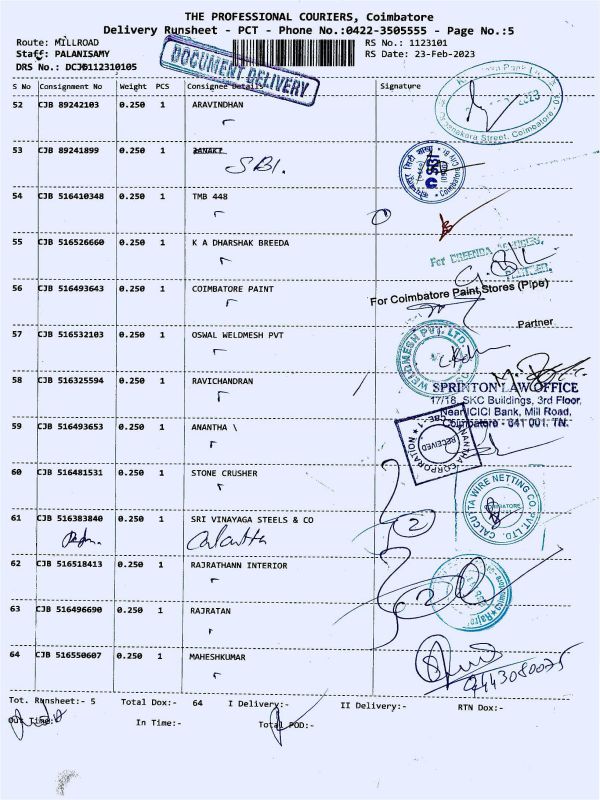 THE PROFESSIONAL COURIERS, Coimbatore
Delivery Runsheet - PCT - Phone No.:0422-3505555 - Page No.:5
Route: MILLROAD
RS No.: 1123101
Staff: PALANISAMY
RS Date: 23-Feb-2023
DRS No.: DCJB112310105
DOCUMENT DELIVERY
S No Consignment No Weight PCS Consignee Details Signature
52 CJB 89242103 0.250 1 ARAVINDHAN
2023
Street, Coimbatore
53 CJB 89241899 0.250 1 JANAKI
SBI.
54 CJB 516410348 0.250 1 TMB 448
55 CJB 516526660 0.250 1 K A DHARSHAK BREEDA
56 CJB 516493643 0.250 1 COIMBATORE PAINT
For Coimbatore Paint Stores (Pipe)
Partner
57 CJB 516532103 0.250 1 OSWAL WELDMESH PVT
WELDMESH PVT. LTD.
58 CJB 516325594 0.250 1 RAVICHANDRAN
SPRINTON LAW OFFICE
17/18, SKC Buildings, 3rd Floor,
Near ICICI Bank, Mill Road,
Coimbatore - 641 001. TN.
59 CJB 516493653 0.250 1 ANANTHA \
ANANTHA CORPORATION
RECEIVED
60 CJB 516481531 0.250 1 STONE CRUSHER
CALCUTTA WIRE NETTING CO. PVT. LTD.
61 CJB 516383840 0.250 1 SRI VINAYAGA STEELS & CO
Calcutta
2
62 CJB 516518413 0.250 1 RAJRATHANN INTERIOR
63 CJB 516496690 0.250 1 RAJRATAN
64 CJB 516550607 0.250 1 MAHESHKUMAR
9443080075
Tot. Runsheet:- 5 Total Dox:- 64 I Delivery:- II Delivery:- RTN Dox:-
Out Time:- In Time:- Total POD:-